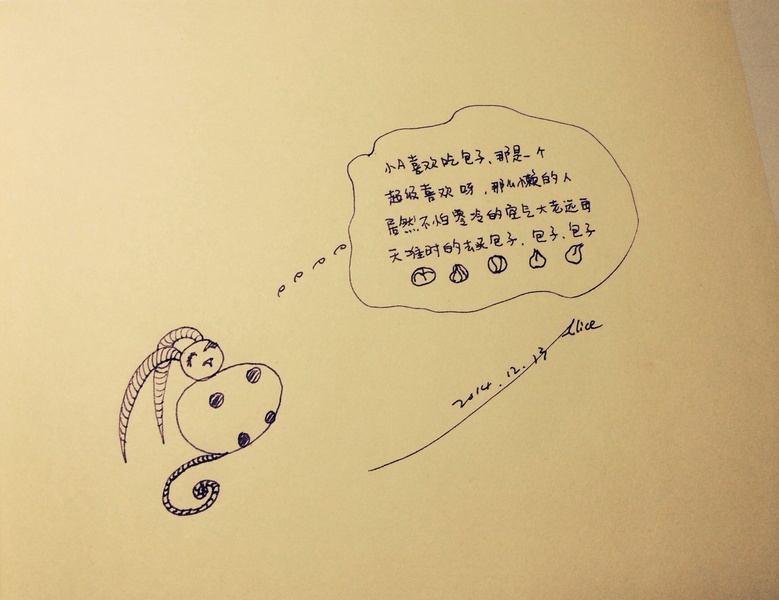 小A喜欢吃包子、那是一个
超级喜欢呀，那么懒的人
居然不怕零冷的空气大老远每
天准时的去买包子、包子、包子
2014.12.13 Alice